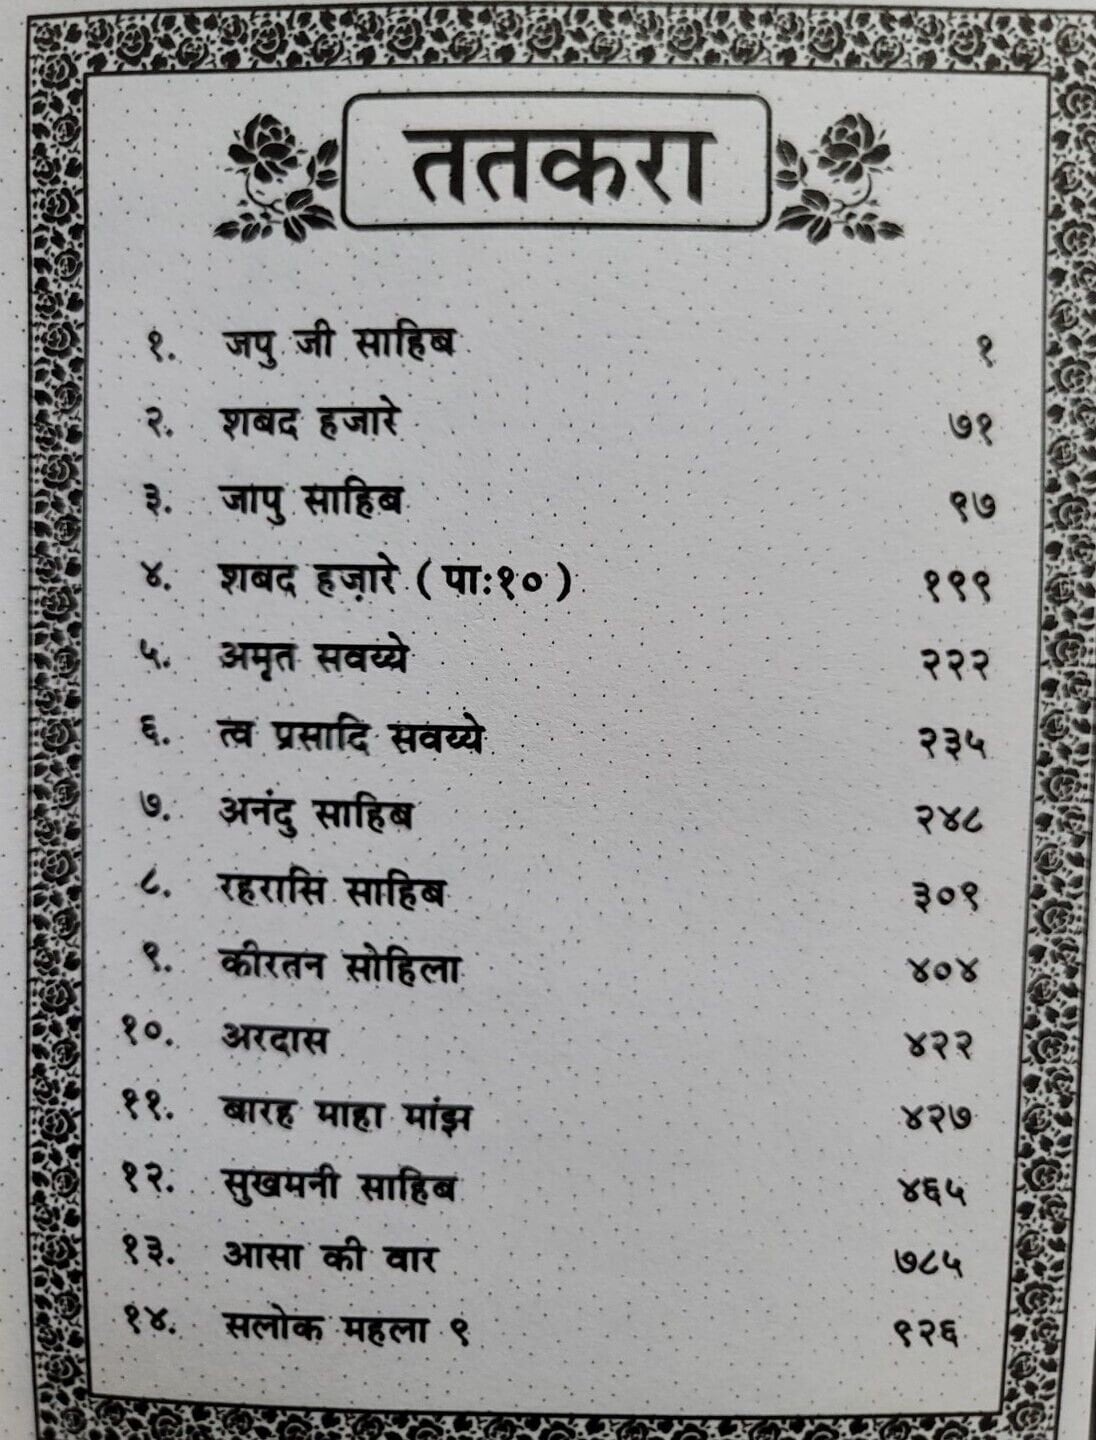 ततकरा
१. जपु जी साहिब १
२. शबद हजारे ७१
३. जापु साहिब ९७
४. शबद हज़ारे (पा:१०) १९९
५. अमृत सवय्ये २२२
६. त्व प्रसादि सवय्ये २३५
७. अनंदु साहिब २४८
८. रहरासि साहिब ३०९
९. कीरतन सोहिला ४०४
१०. अरदास ४२२
११. बारह माहा मांझ ४२७
१२. सुखमनी साहिब ४६५
१३. आसा की वार ७८५
१४. सलोक महला ९ ९२६